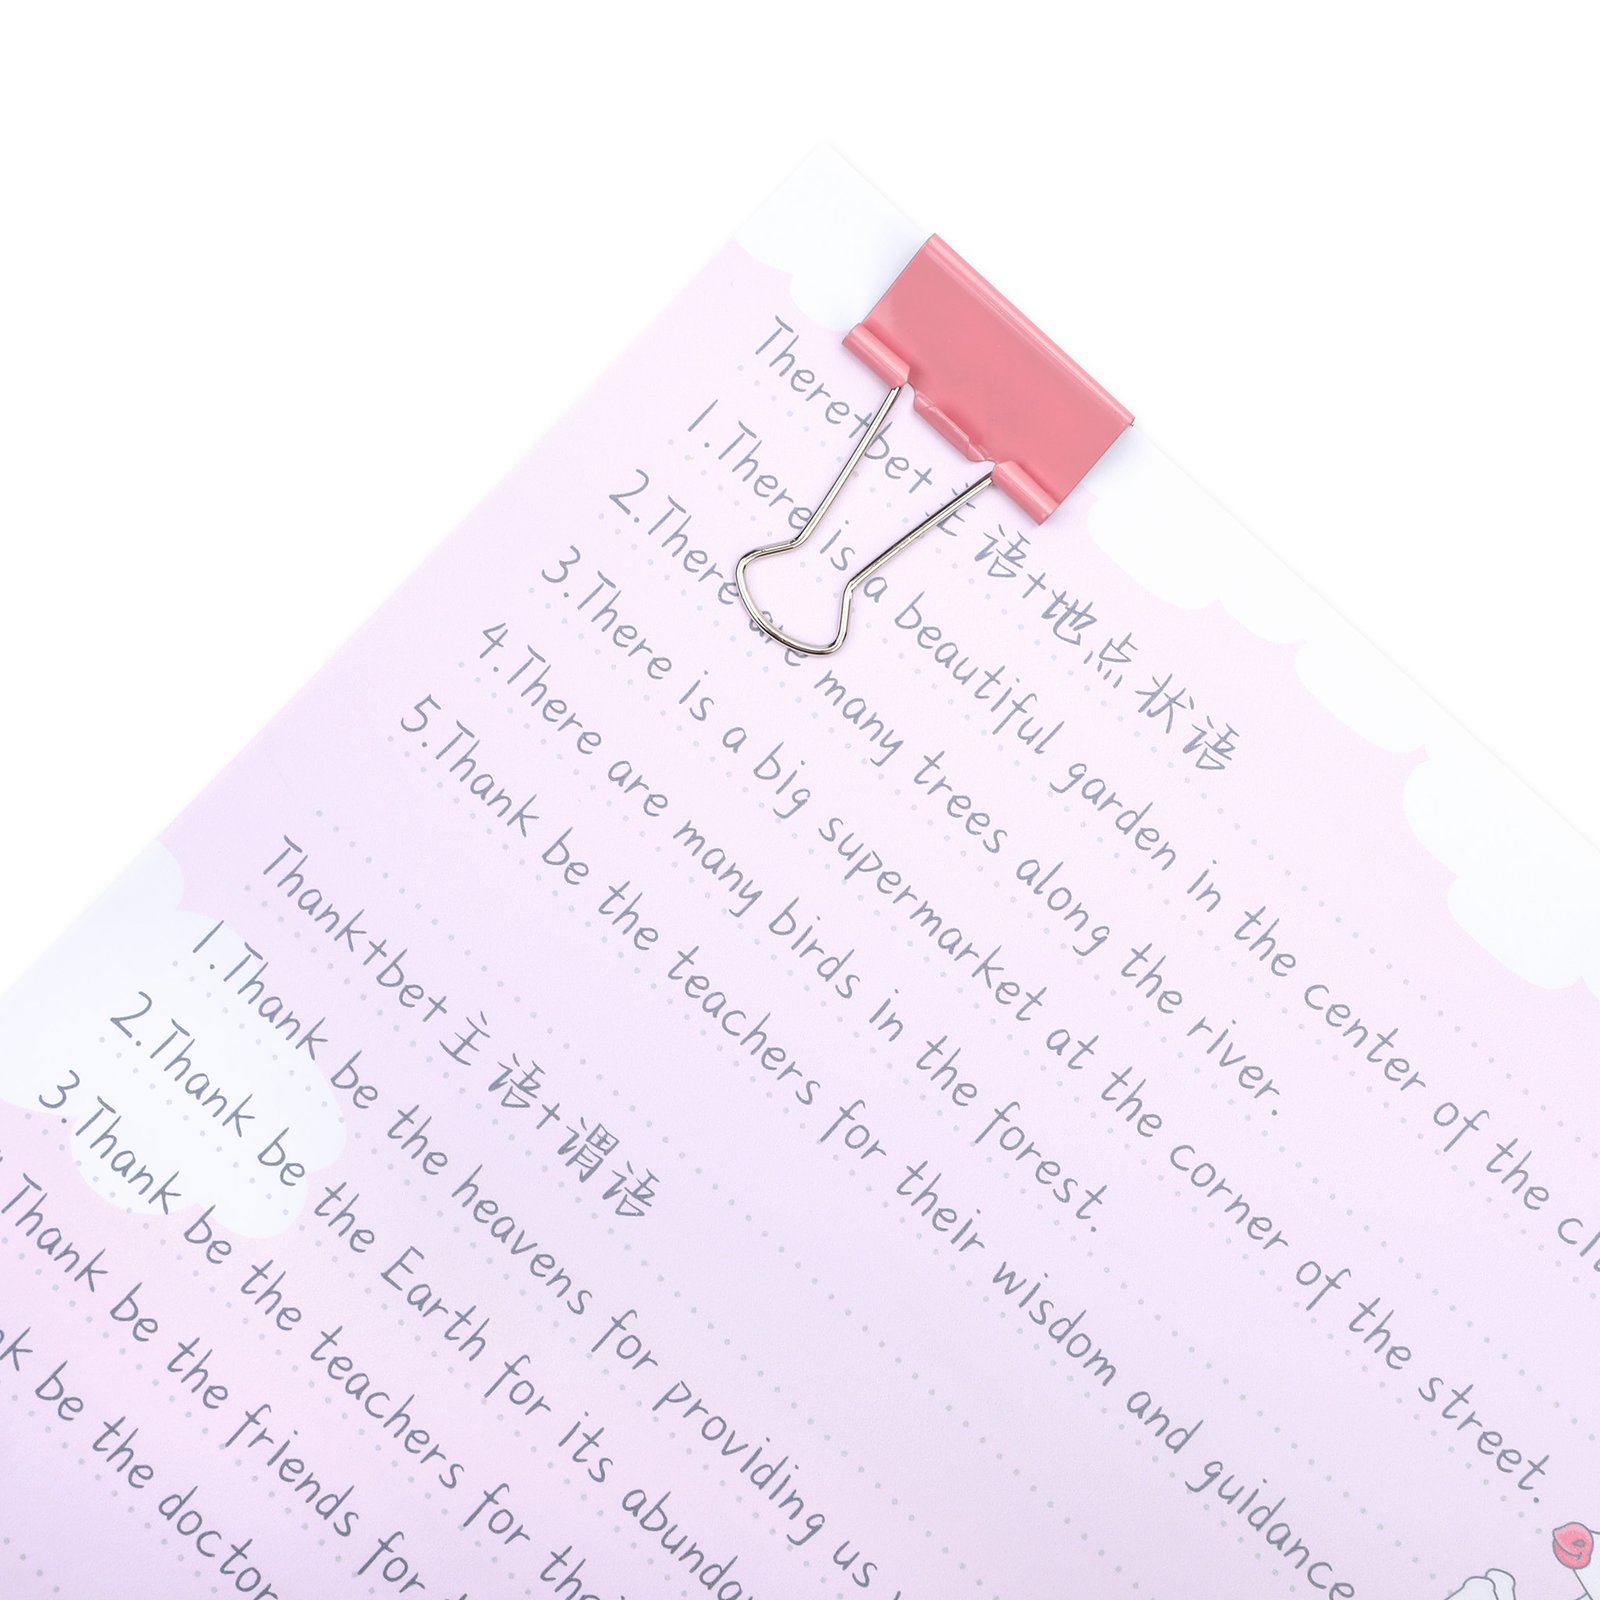 There+be+主语+地点状语
1.There is a beautiful garden in the center of the
2.There are many trees along the river.
3.There is a big supermarket at the corner of the street.
4.There are many birds in the forest.
5.Thank be the teachers for their wisdom and guidance
Thank+be+主语+谓语
1.Thank be the heavens for providing us
2.Thank be the Earth for its
3.Thank be the teachers for
Thank be the friends for
be the